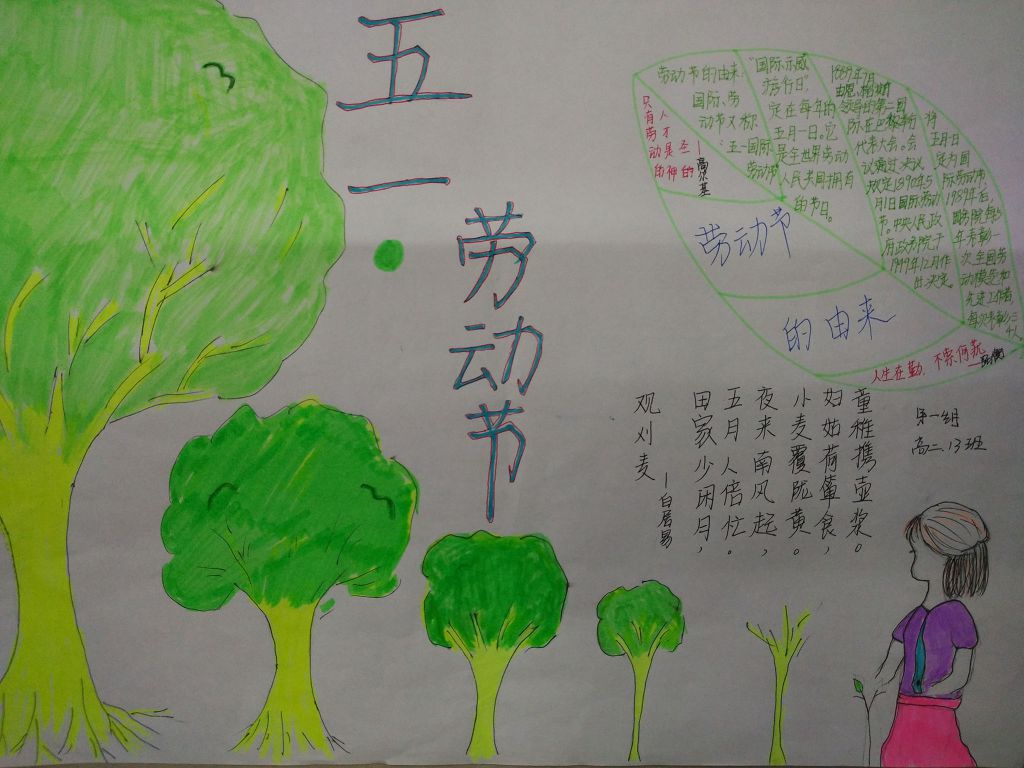 五一·劳动节
劳动节的由来:
国际劳
动节又称
"五一国际
劳动节
"国际示威
游行日"
定在每年的
五月一日。它
是全世界劳动
人民共同拥有
的节日。
1889年7月
由恩格斯
领导的第二国
际在巴黎举行
代表大会。会
议通过决议
规定1890年5
月1日国际劳动
节。中央人民政
府政务院于
1949年12月作
出决定
将
五月一日
定为国
际劳动节
1989年后,
国务院每5
年表彰一
次全国劳
动模范和
先进工作者
每次表彰
只有人
劳才
动是至
的神的
—高尔基
劳动节
的由来
人生在勤,不索何获
—张衡
观刈麦
—白居易
田家少闲月,
五月人倍忙。
夜来南风起,
小麦覆陇黄。
妇姑荷箪食,
童稚携壶浆。
第一组
高二.13班